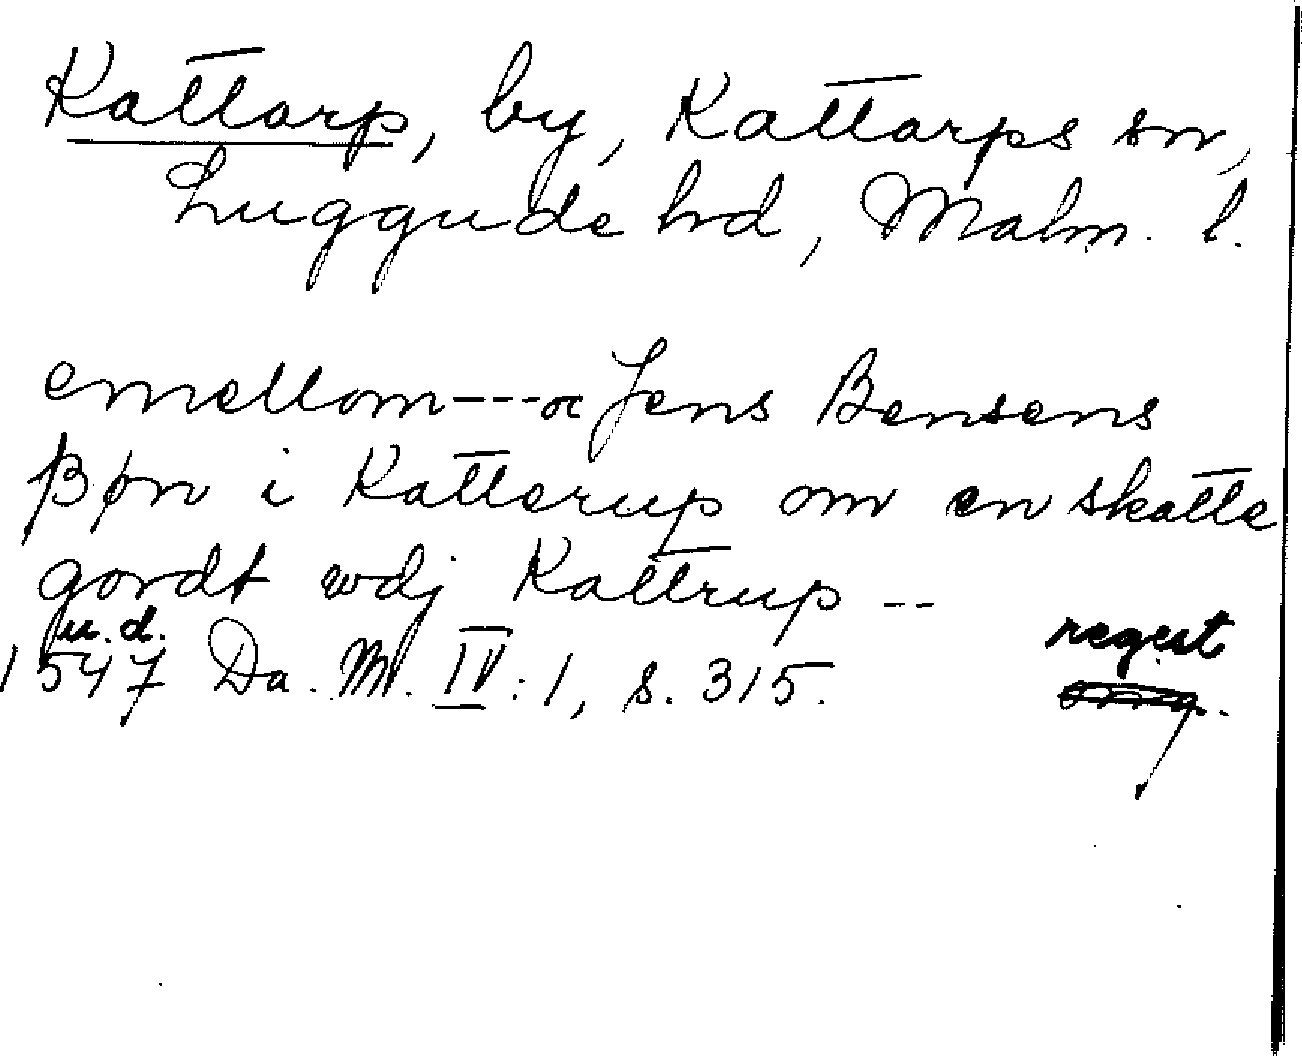 Kattarp, by, Kattarps sn,
Luggude hd, Malm. l.
emellom---oc Jens Bensens
Bøn i Katterup om en skatte
gordt wdj Kattrup --
u.d.
regest
1547 Da. M. IV:1, s. 315.